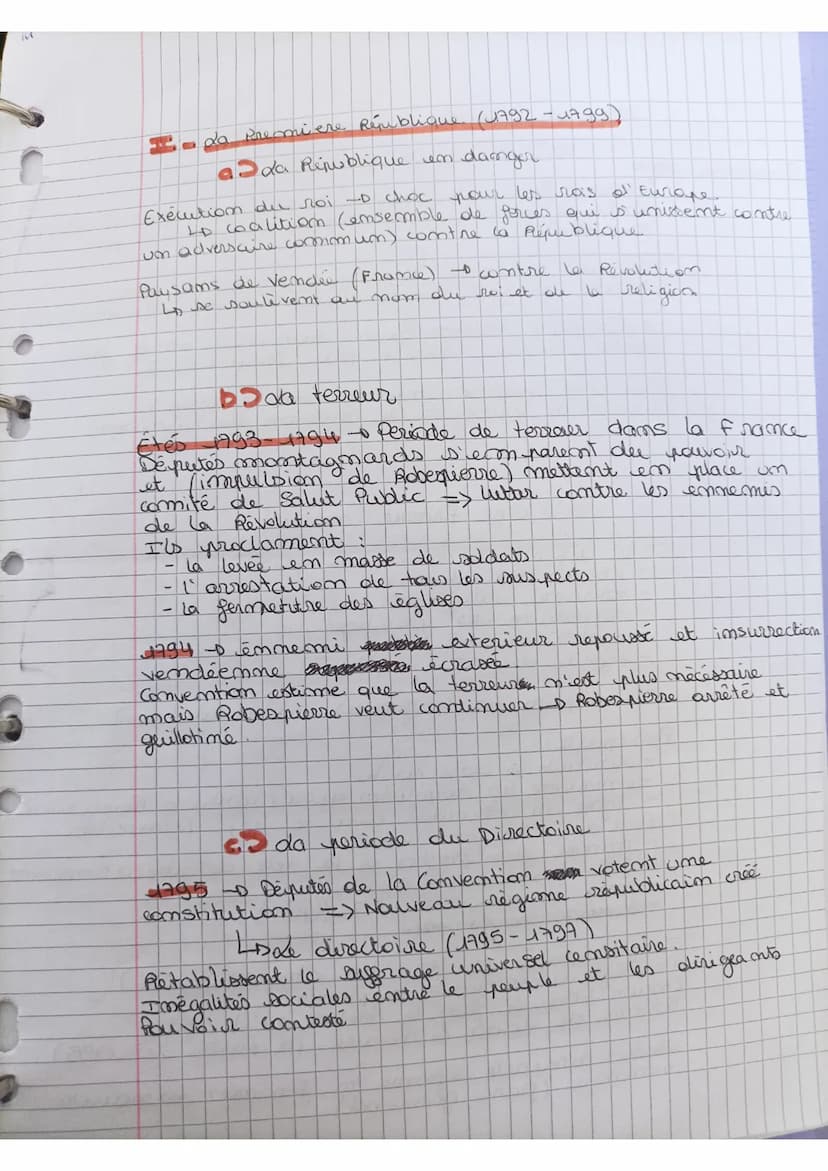 I - La Première République (1792-1799)
a) La République en danger
Exécution du roi → choc pour les rois d'Europe.
↳ coalition (ensemble de forces qui s'unissent contre
un adversaire commun) contre la République
Paysans de Vendée (France) → contre la Révolution
↳ se soulèvent au nom du roi et de la religion
b) La terreur
Étés 1793-1794 → Période de terreur dans la France
Députés montagnards s'emparent du pouvoir
et (impulsion de Robespierre) mettent en place un
comité de Salut Public => lutter contre les ennemis
de la Révolution
Ils proclament :
- la levée en masse de soldats
- l'arrestation de tous les suspects
- la fermeture des églises
1794 → ennemi exterieur repoussé et insurrection
vendéenne écrasée
Convention estime que la terreur n'est plus nécéssaire
mais Robespierre veut continuer → Robespierre arrêté et
guillotiné.
c) La periode du Directoire
1795 → Députés de la Convention votent une
constitution => Nouveau régime républicain créé
↳ Le directoire (1795-1799)
Rétablissent le suffrage universel censitaire.
Inégalités sociales entre le peuple et les dirigeants
Pouvoir contesté